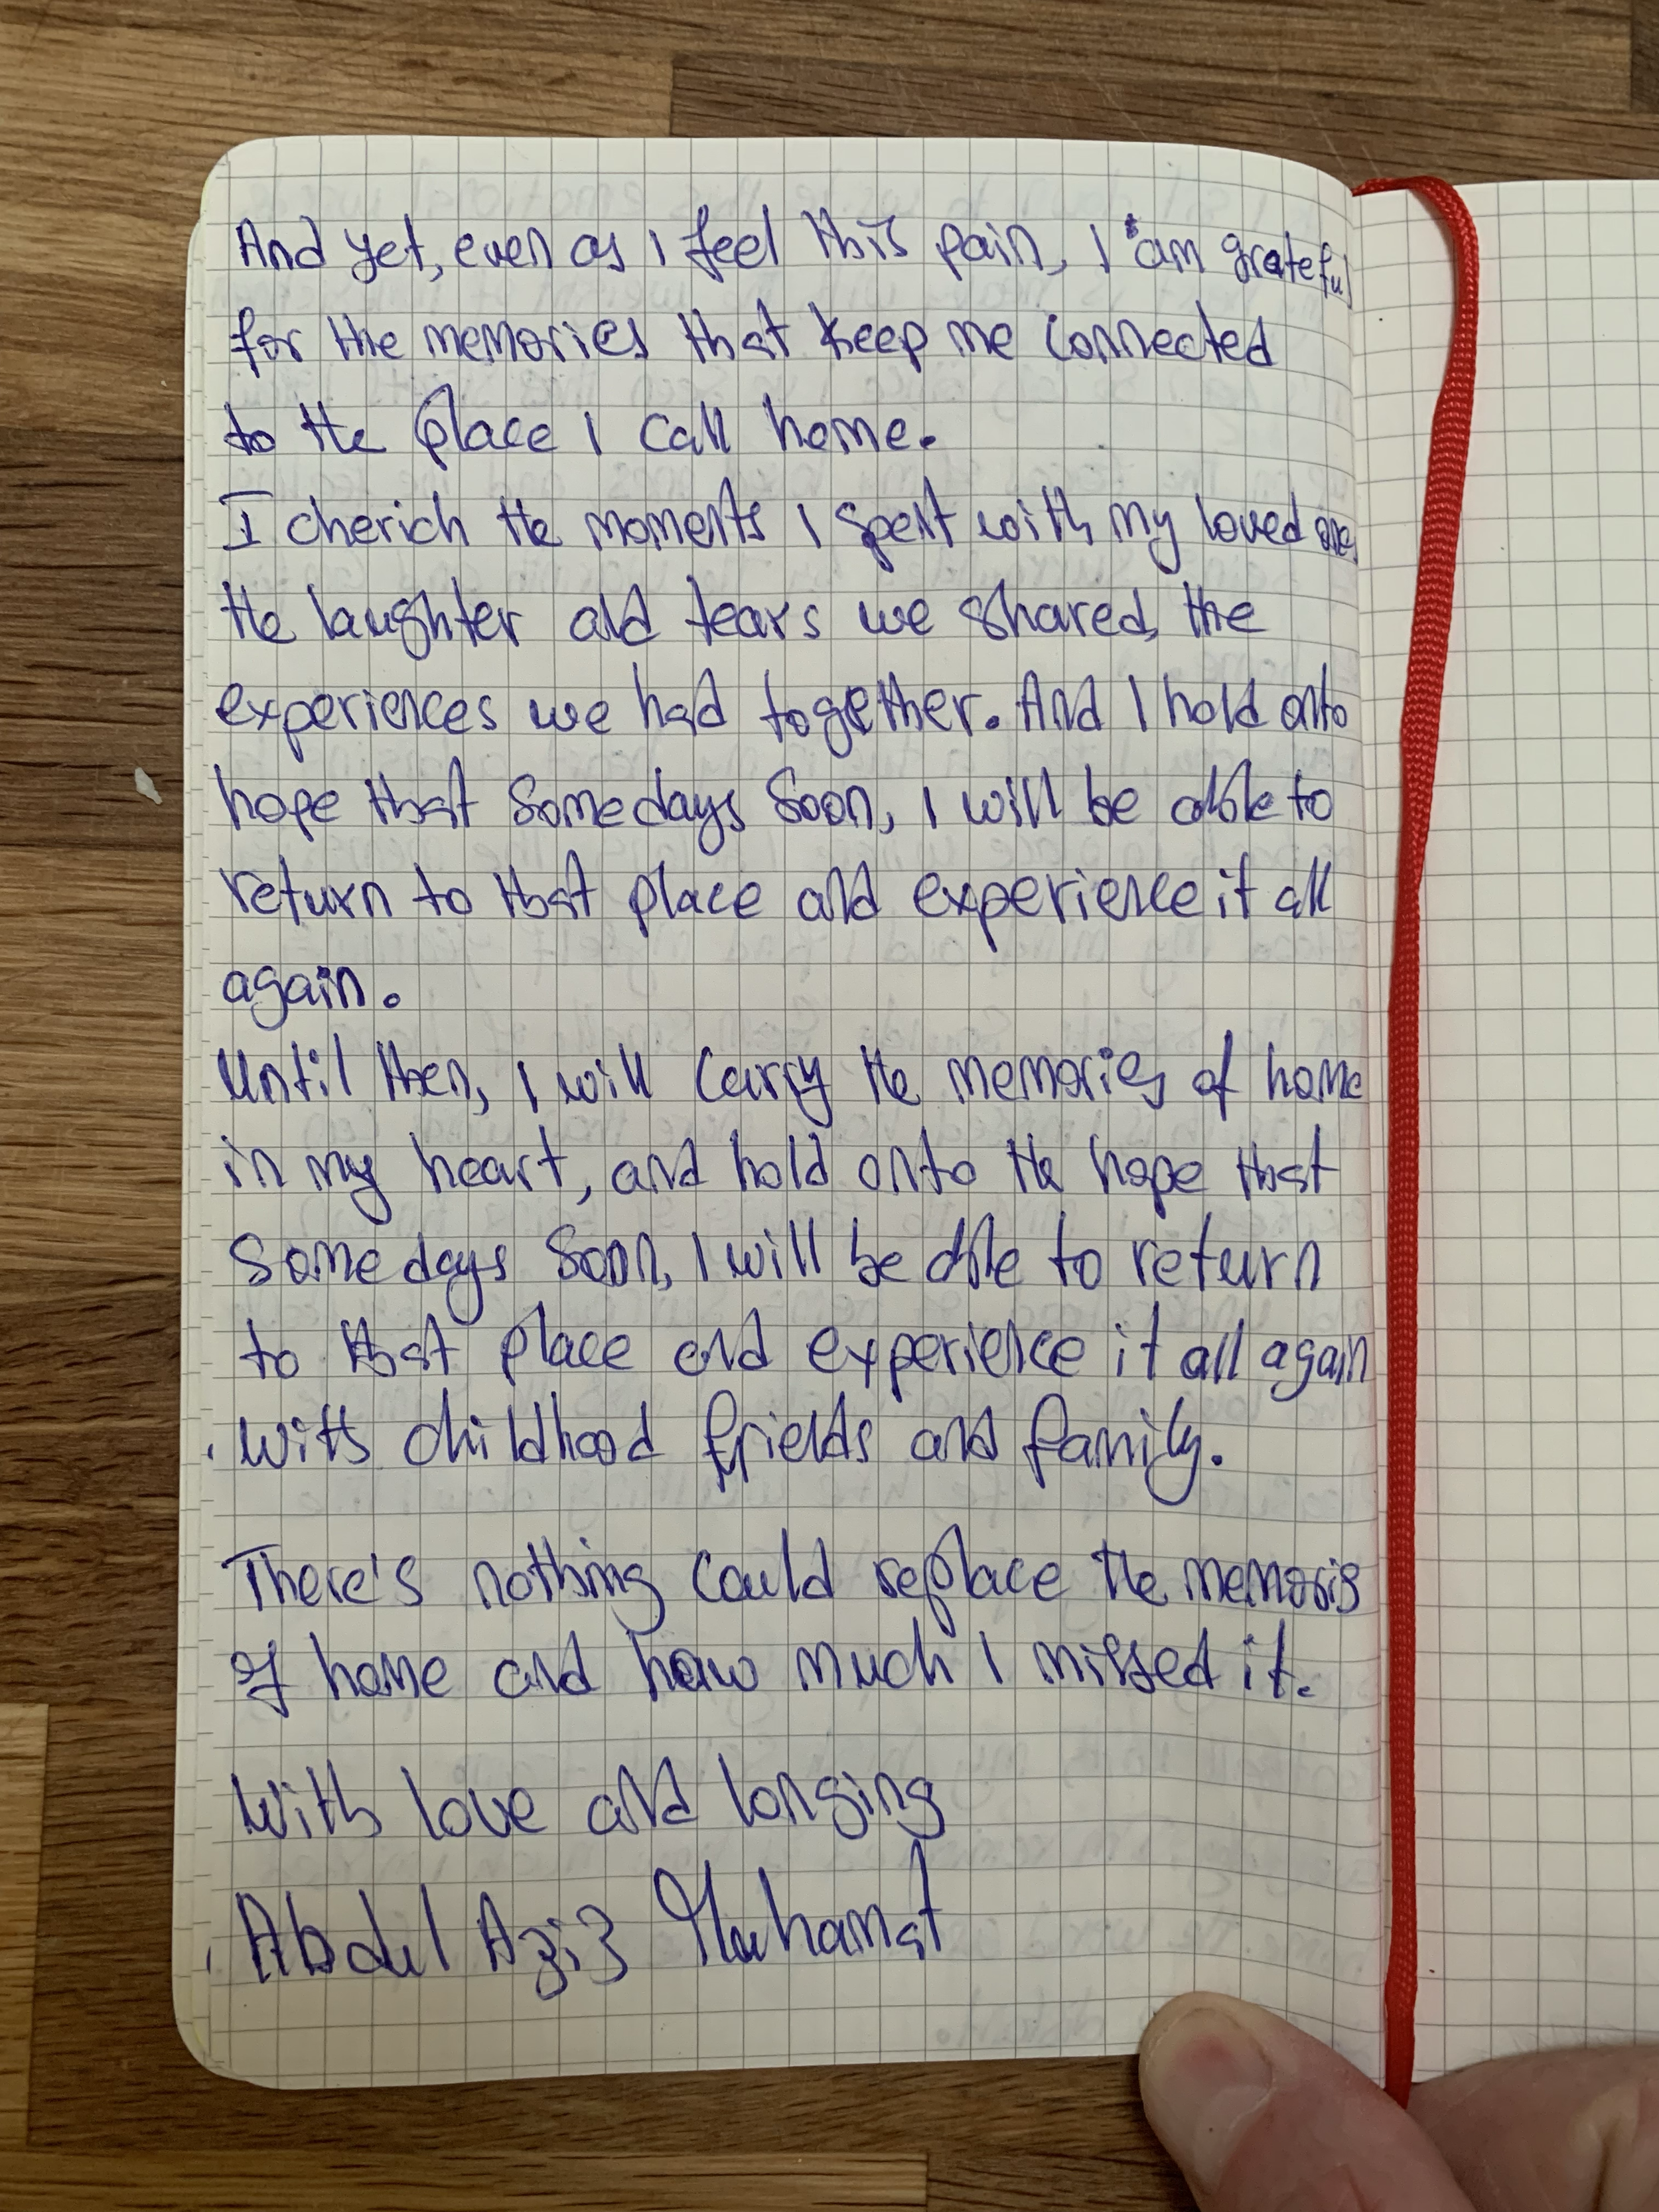 And yet, even as I feel this pain, I am grateful
for the memories that keep me connected
to the place I call home.
I cherich the moments I spent with my loved one,
the laughter and tears we shared, the
experiences we had together. And I hold onto
hope that somedays soon, I will be able to
return to that place and experience it all
again.
Until then, I will carry the memories of home
in my heart, and hold onto the hope that
somedays soon, I will be able to return
to that place and experience it all again
with childhood friends and family.
There's nothing could replace the memoris
of home and how much I missed it.
With love and longing
Abdul Aziz